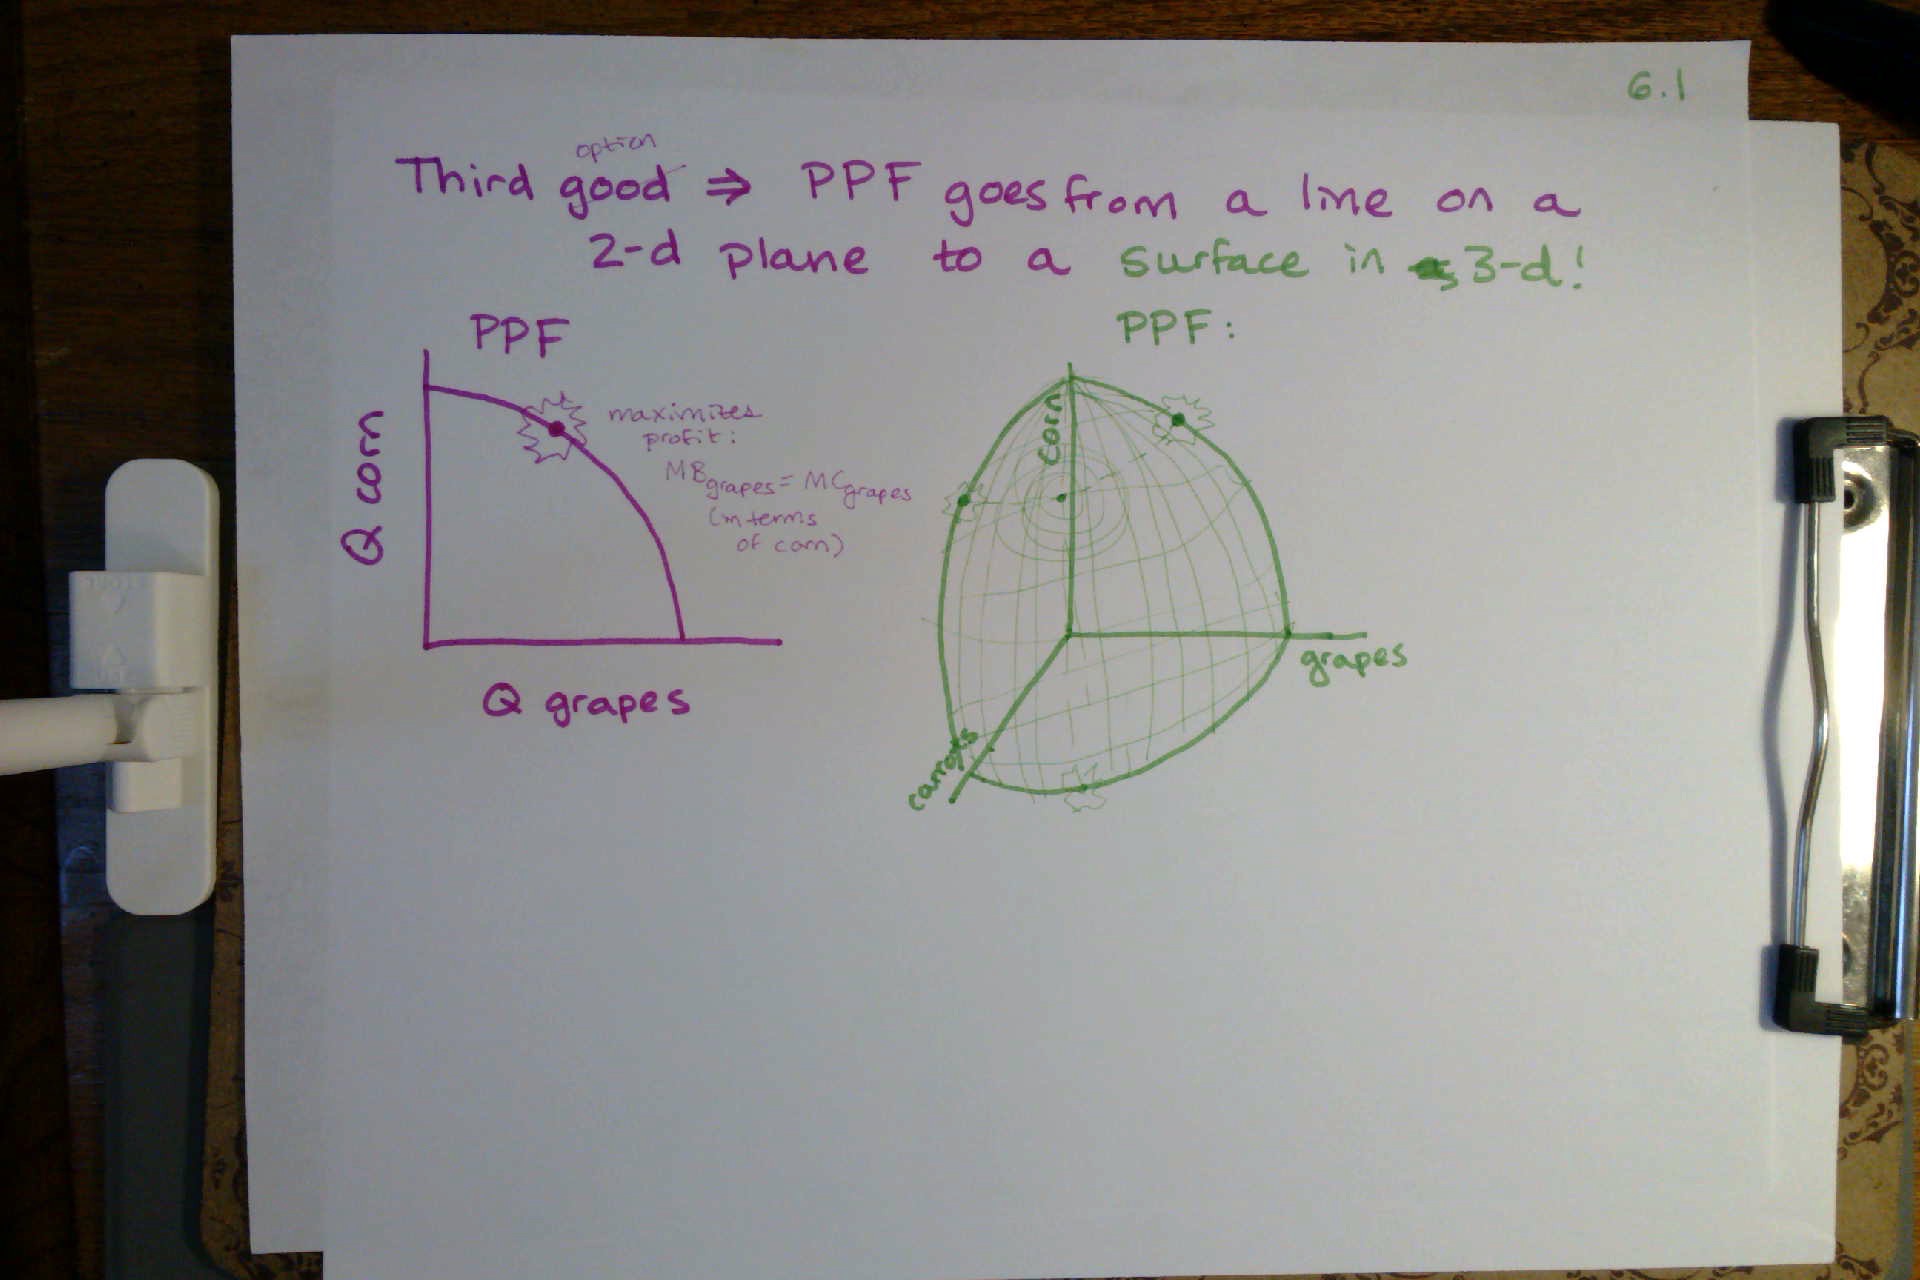 6.1
option
Third good ⇒ PPF goes from a line on a
2-d plane to a surface in 3-d!
PPF
Q corn
Q grapes
maximizes
profit:
MBgrapes = MCgrapes
(in terms
of corn)
PPF:
corn
grapes
carrots